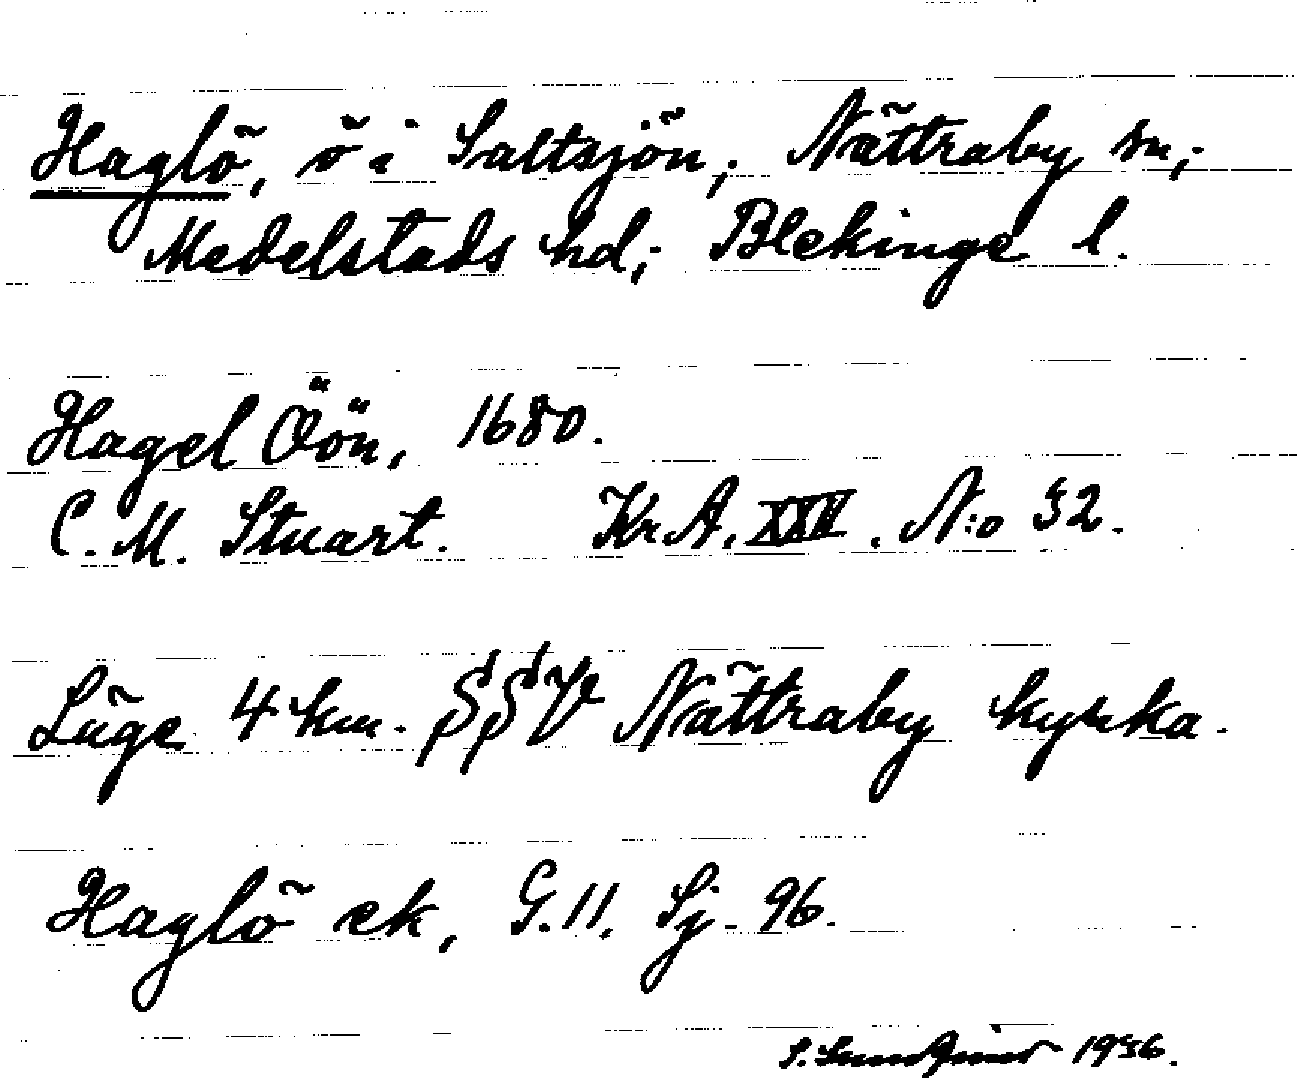 Haglö, ö i Saltsjön, Nättraby sn,
Medelstads hd, Blekinge l.
Hagel Öön, 1680.
C. M. Stuart. Kr.A. XXV. N:o 32.
Läge 4 km. SSV Nättraby kyrka.
Haglö ek, G.11, Sj. 96.
S. 1936.